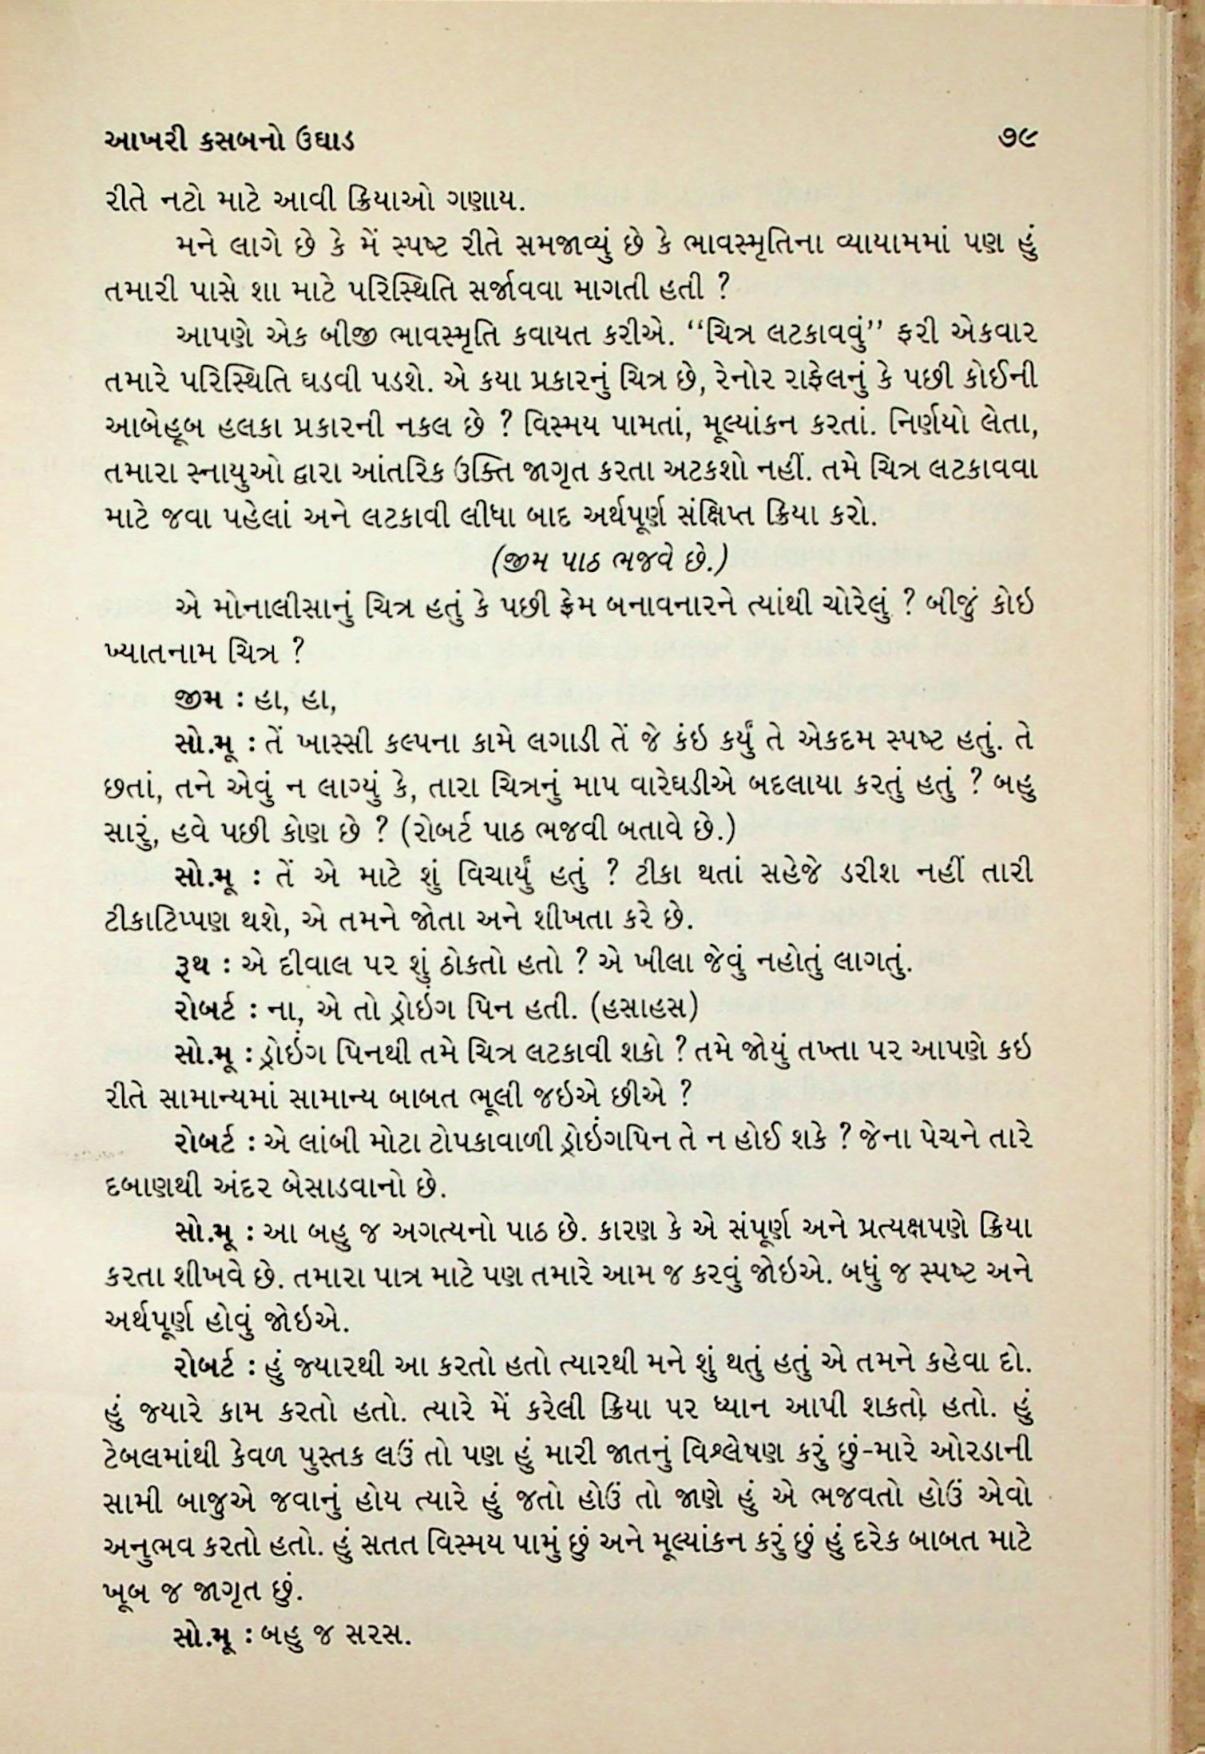 આખરી કસબનો ઉઘાડ ૭૯
રીતે નટો માટે આવી ક્રિયાઓ ગણાય.
મને લાગે છે કે મેં સ્પષ્ટ રીતે સમજાવ્યું છે કે ભાવસ્મૃતિના વ્યાયામમાં પણ હું
તમારી પાસે શા માટે પરિસ્થિતિ સર્જાવવા માગતી હતી ?
આપણે એક બીજી ભાવસ્મૃતિ કવાયત કરીએ. “ચિત્ર લટકાવવું” ફરી એકવાર
તમારે પરિસ્થિતિ ઘડવી પડશે. એ કયા પ્રકારનું ચિત્ર છે, રેનોર રાફેલનું કે પછી કોઈની
આબેહૂબ હલકા પ્રકારની નકલ છે ? વિસ્મય પામતાં, મૂલ્યાંકન કરતાં. નિર્ણયો લેતા,
તમારા સ્નાયુઓ દ્વારા આંતરિક ઉક્તિ જાગૃત કરતા અટકશો નહીં. તમે ચિત્ર લટકાવવા
માટે જવા પહેલાં અને લટકાવી લીધા બાદ અર્થપૂર્ણ સંક્ષિપ્ત ક્રિયા કરો.
(જીમ પાઠ ભજવે છે.)
એ મોનાલીસાનું ચિત્ર હતું કે પછી ફ્રેમ બનાવનારને ત્યાંથી ચોરેલું ? બીજું કોઇ
ખ્યાતનામ ચિત્ર ?
જીમ : હા, હા,
સો.મૂ : તેં ખાસ્સી કલ્પના કામે લગાડી તેં જે કંઇ કર્યું તે એકદમ સ્પષ્ટ હતું. તે
છતાં, તને એવું ન લાગ્યું કે, તારા ચિત્રનું માપ વારેઘડીએ બદલાયા કરતું હતું ? બહુ
સારું, હવે પછી કોણ છે ? (રોબર્ટ પાઠ ભજવી બતાવે છે.)
સો.મૂ : તેં એ માટે શું વિચાર્યું હતું ? ટીકા થતાં સહેજે ડરીશ નહીં તારી
ટીકાટિપ્પણ થશે, એ તમને જોતા અને શીખતા કરે છે.
રૂથ : એ દીવાલ પર શું ઠોકતો હતો ? એ ખીલા જેવું નહોતું લાગતું.
રોબર્ટ : ના, એ તો ડ્રોઇંગ પિન હતી. (હસાહસ)
સો.મૂ : ડ્રોઇંગ પિનથી તમે ચિત્ર લટકાવી શકો ? તમે જોયું તખ્તા પર આપણે કઇ
રીતે સામાન્યમાં સામાન્ય બાબત ભૂલી જઇએ છીએ ?
રોબર્ટ : એ લાંબી મોટા ટોપકાવાળી ડ્રોઇંગપિન તે ન હોઈ શકે ? જેના પેચને તારે
દબાણથી અંદર બેસાડવાનો છે.
સો.મૂ : આ બહુ જ અગત્યનો પાઠ છે. કારણ કે એ સંપૂર્ણ અને પ્રત્યક્ષપણે ક્રિયા
કરતા શીખવે છે. તમારા પાત્ર માટે પણ તમારે આમ જ કરવું જોઇએ. બધું જ સ્પષ્ટ અને
અર્થપૂર્ણ હોવું જોઇએ.
રોબર્ટ : હું જયારથી આ કરતો હતો ત્યારથી મને શું થતું હતું એ તમને કહેવા દો.
હું જયારે કામ કરતો હતો. ત્યારે મેં કરેલી ક્રિયા પર ધ્યાન આપી શકતો હતો. હું
ટેબલમાંથી કેવળ પુસ્તક લઉં તો પણ હું મારી જાતનું વિશ્લેષણ કરું છું-મારે ઓરડાની
સામી બાજુએ જવાનું હોય ત્યારે હું જતો હોઉં તો જાણે હું એ ભજવતો હોઉં એવો
અનુભવ કરતો હતો. હું સતત વિસ્મય પામું છું અને મૂલ્યાંકન કરું છું હું દરેક બાબત માટે
ખૂબ જ જાગૃત છું.
સો.મૂ : બહુ જ સરસ.